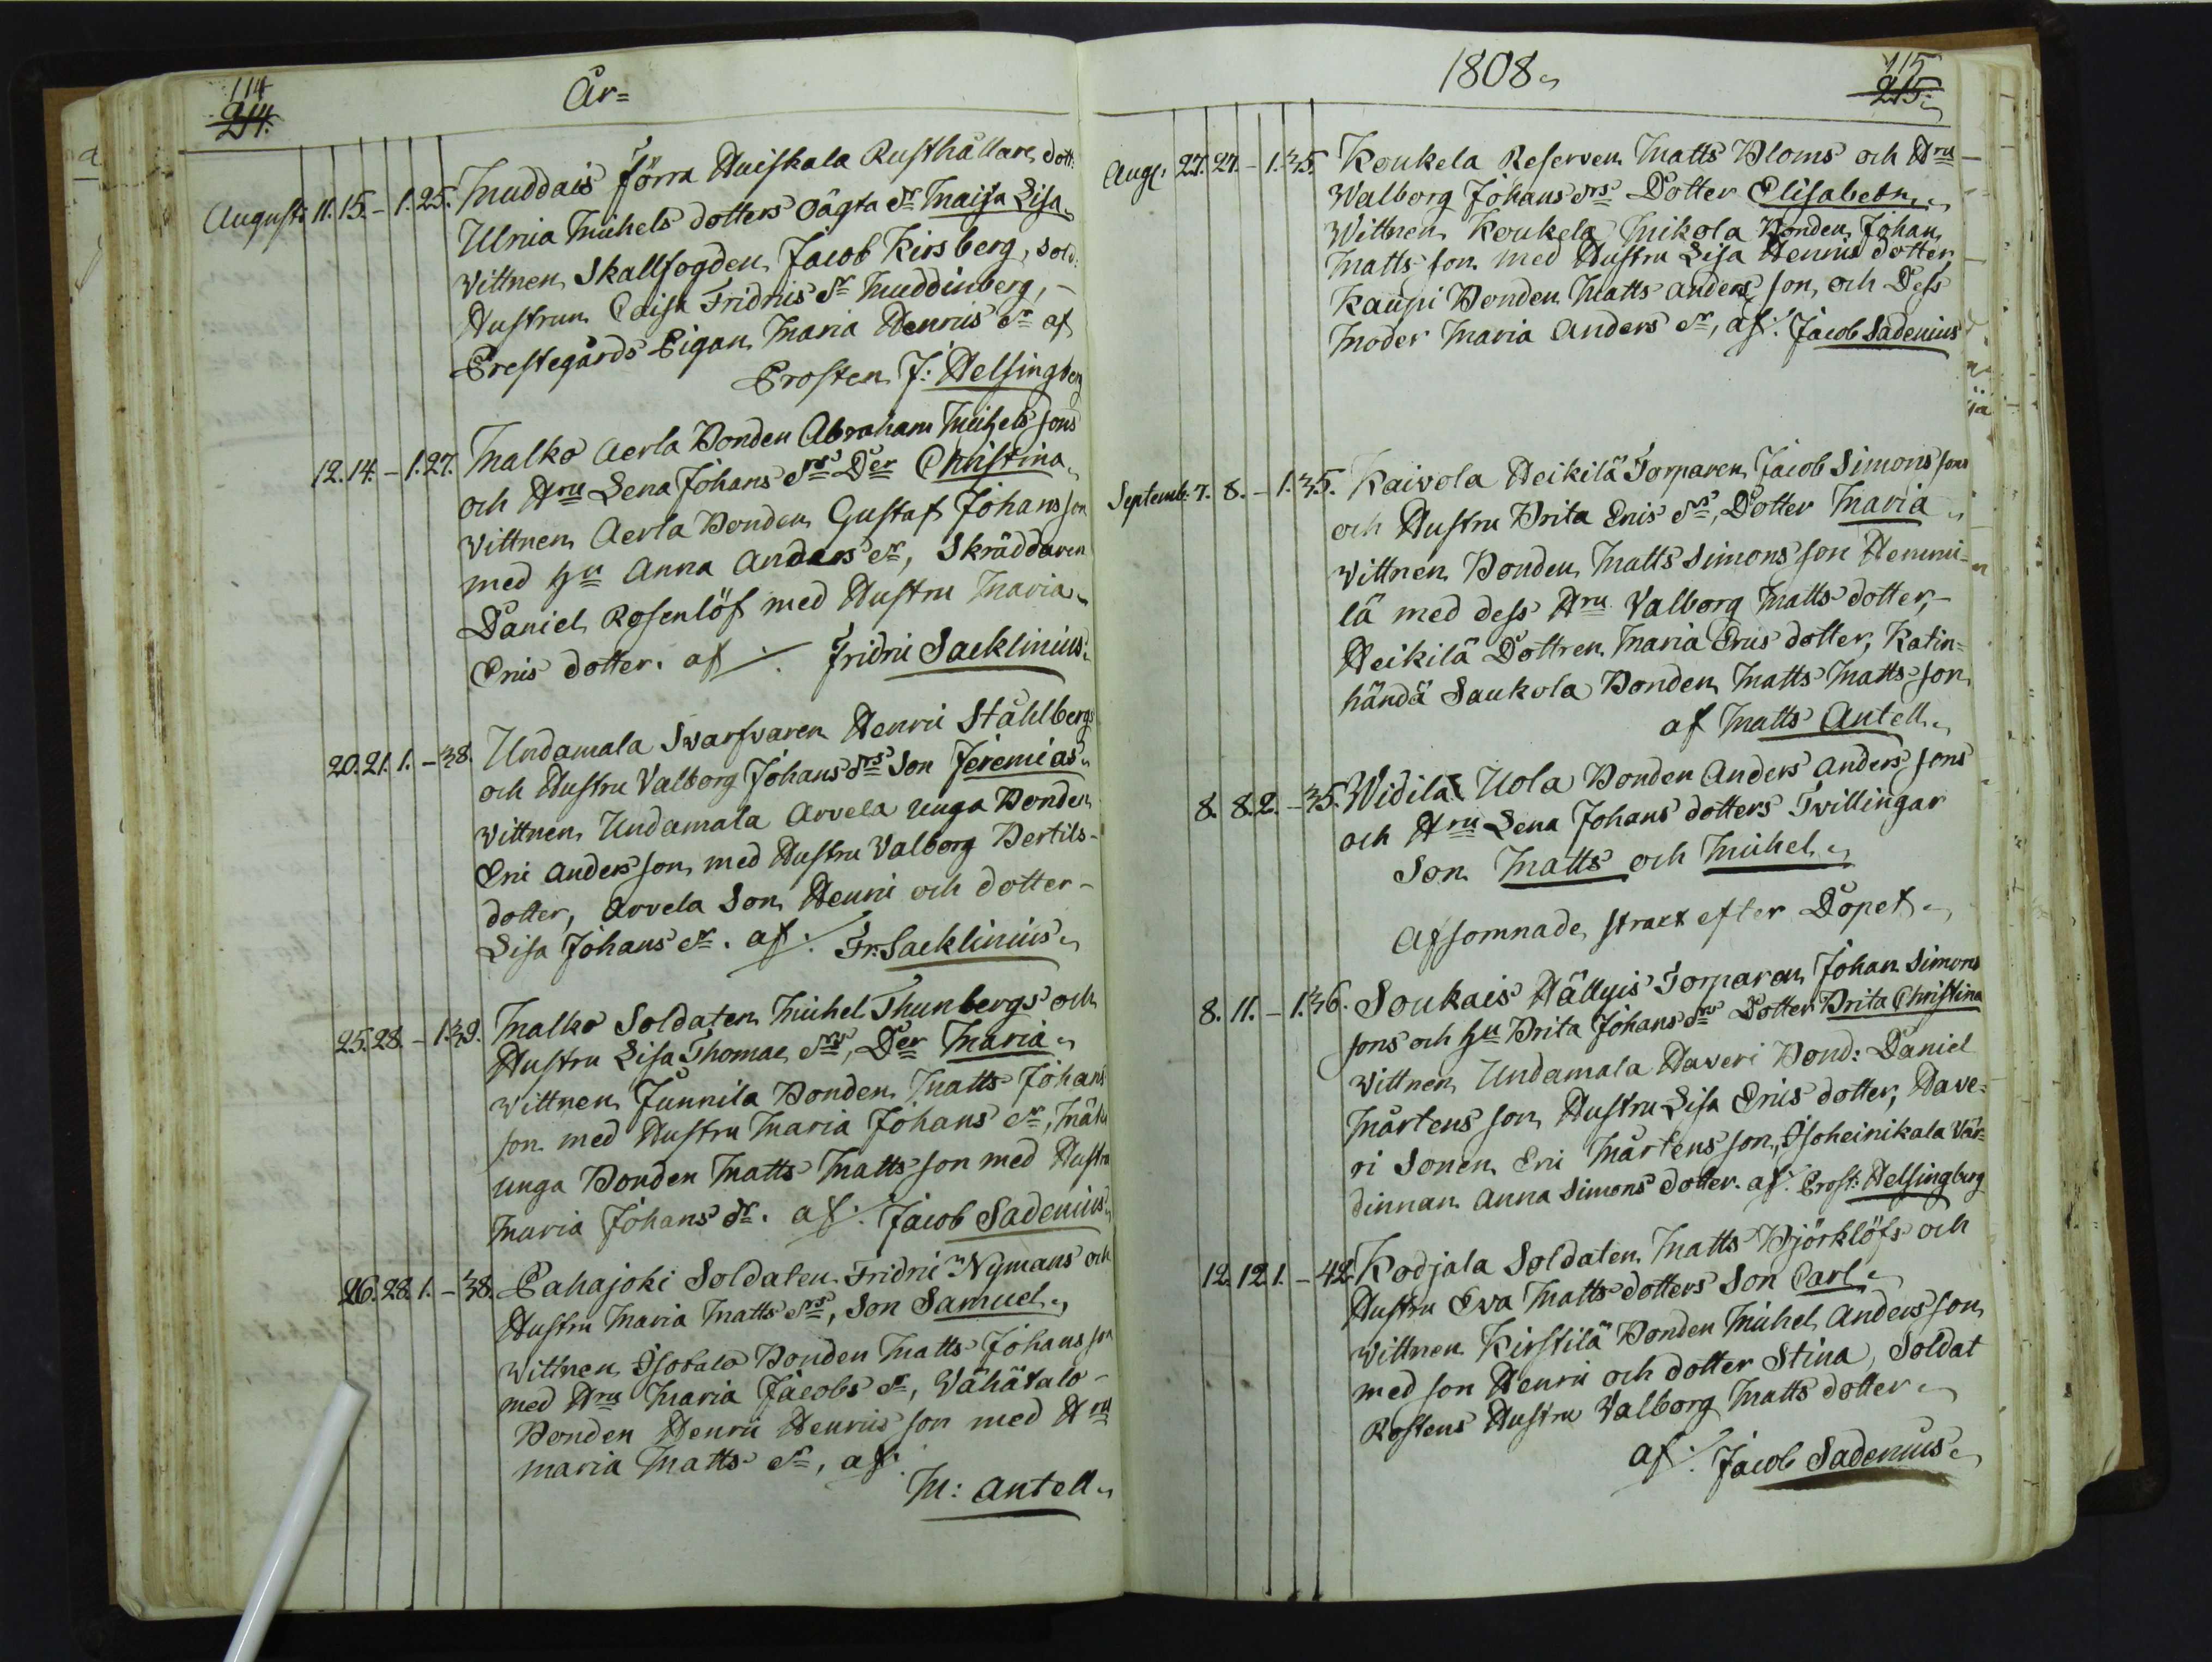 114
214.
År=
August: 11. 15. – 1. 25. Muddais förra Huiskala Rusthållare dott:
Ulrica Michels dotters oägta dr Maija Lisa
Vittnen Skallfogden Jacob Kirsberg, Sold:
Hustrun Caisa Fridrics dr Muddinberg, –
Prestegårds Pigan Maria Henrics dr af
Prosten J: Helsingberg
12. 14. – 1. 27. Malko Aerla Bonden Abraham Michels sons
och Hru Lena Johans drs Der Christina
Vittnen Aerla Bonden Gustaf Johans son
med Hu Anna Anders dr, Skräddaren
Daniel Rosenlöf med Hustru Maria
Erics dotter. af ./. Fridric Sacklinius
20. 21. 1. – 38. Undamala Svarfvaren Henric Ståhlbergs
och Hustru Valborg Johans drs Son Jeremias
Vittnen Undamala Arvela unga Bonden
Eric Anders son med Hustru Valborg Bertils-
dotter, Arvela Son Henric och dotter-
Lisa Johans dr. af ./. Fr. Sacklinius
25. 28. – 1. 39. Malko Soldaten Michel Thunbergs och
Hustru Lisa Thomae drs, Der Maria
Vittnen Junnila Bonden Matts Johans
son med Hustru Maria Johans dr,
unga Bonden Matts Matts son med Hustru
Maria Johans dr. af ./. Jacob Sadenius
26. 28. 1. – 38. Pahajoki Soldaten Fridric Nymans och
Hustru Maria Matts drs, Son Samuel
Vittnen Isotalo Bonden Matts Johans son
med Hru Maria Jacobs dr, Vähätalo-
Bonden Henric Henrics son med Hru
Maria Matts dr, af ./.
M: Antell
1808
115
215.
Aug: 27. 27. – 1. 35. Koukela Reserven Matts Bloms och Hru
Walborg Johans drs Dotter Elisabeth
Wittnen Koukela Mikola Bonden Johan
Matts son med Hustru Lisa Henrics dotter
Kaupi Bonden Matts Anders son, och Dess
Moder Maria Anders dr, af ./. Jacob Sadenius
Septemb: 7. 8. – 1. 35. Kaivola Heikilä Torparen Jacob Simons sons
och Hustru Brita Erics drs, Dotter Maria
Vittnen Bonden Matts Simons son Hemmi-
lä med dess Hru Valborg Matts dotter, –
Heikilä Dottren Maria Erics dotter, Katin=
händä Saukola Bonden Matts Matts son
af Matts Antell
8. 8. 2. – 35. Widilä Uola Bonden Anders Anders sons
och Hru Lena Johans dotters Tvillingar
Son Matts och Michel
Afsomnade straxt efter Dopet
8. 11. – 1. 36. Soukais Hällyis Torparen Johan Simons
sons och Hu Brita Johans drs Dotter Brita Christina
Vittnen Undamala Haveri Bond: Daniel
Mårtens son, Hustru Lisa Erics dotter, Have=
ri Sonen Eric Mårtens son, Isoheinikala Vär=
dinnan Anna Simons dotter. af ./. Prost: Helsingberg
12. 12. 1. – 42. Kodjala Soldaten Matts Björklöfs och
Hustru Eva Matts dotters Son Carl
Vittnen Kirstilä Bonden Michel Anders son
med son Henric och dotter Stina, Soldat
Rostens Hustru Valborg Matts dotter
af ./. Jacob Sadenius